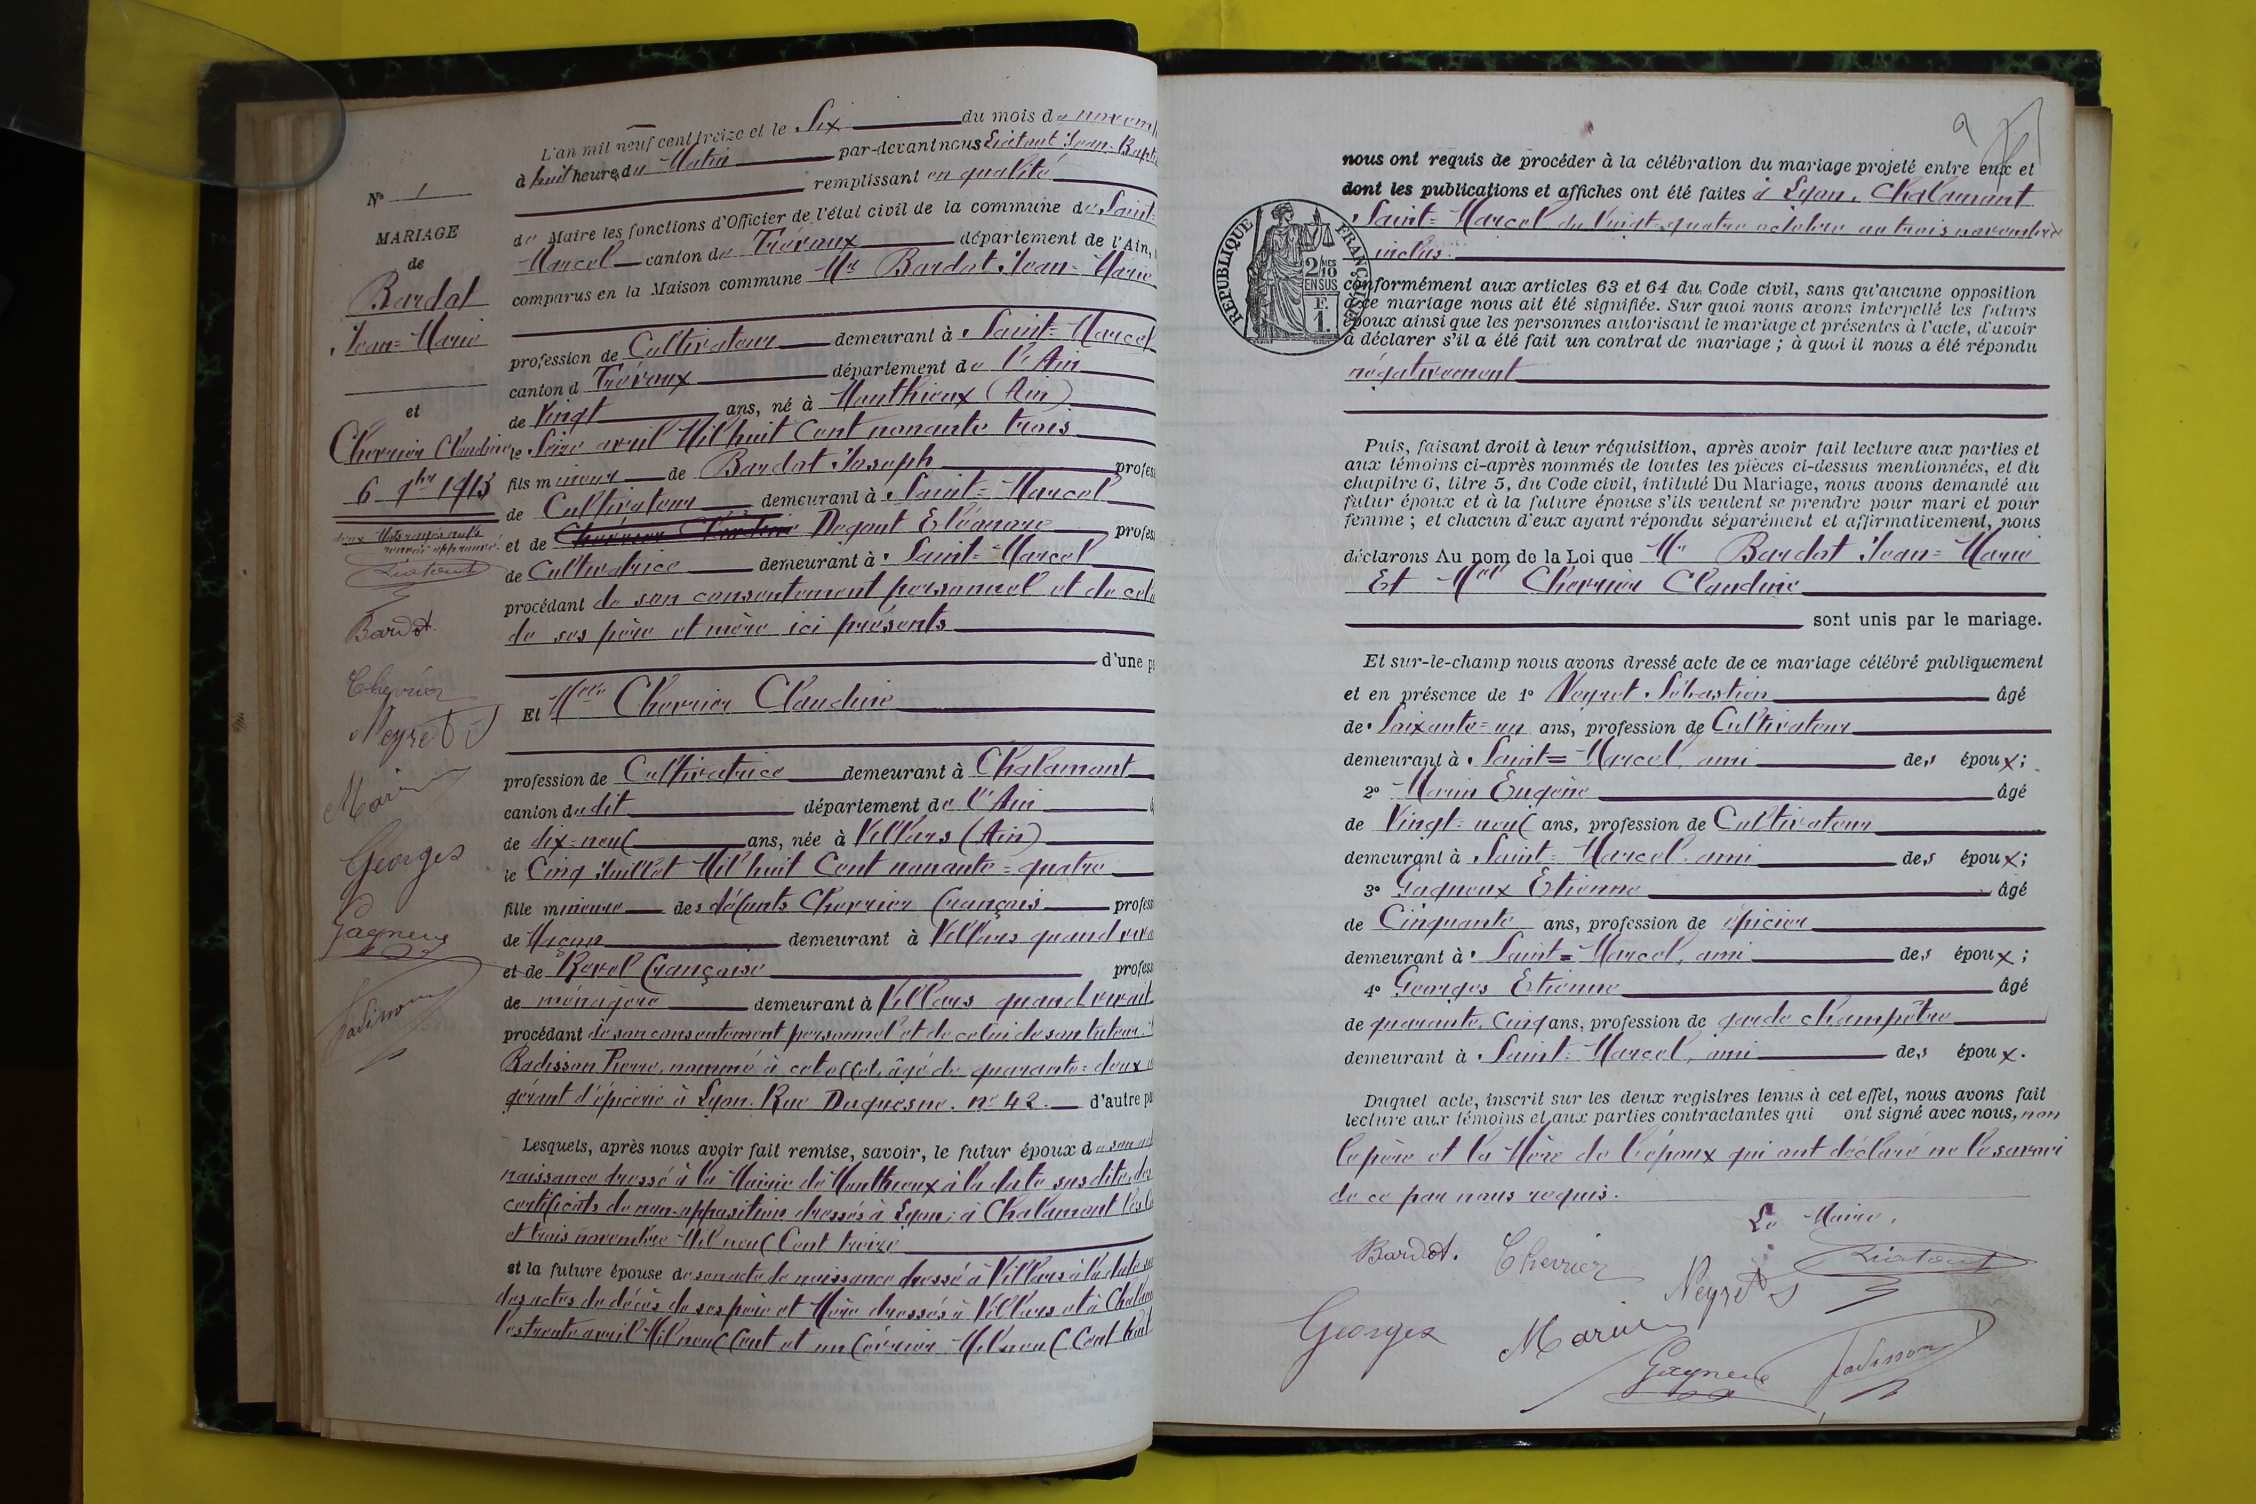 N° 1
MARIAGE
de
Bardot
Jean-Marie
et
Chevrier Claudine
6 9bre 1913
deux mots rayés nuls
renvoi approuvé
Liatout
Bardot
Chevrier
Neyret S
Marin
Georges
Gagneux
Radisson
L'an mil neuf cent treize et le Six du mois de novem
à huit heures du Matin par-devant nous Liatout Jean-Bapti
remplissant en qualité
de Maire les fonctions d'Officier de l'état civil de la commune de Saint-
Marcel canton de Trévoux département de l'Ain,
comparus en la Maison commune Mr Bardot Jean-Marie
profession de Cultivateur demeurant à Saint-Marcel
canton d Trévoux département de l'Ain
de Vingt ans, né à Monthieux (Ain)
le Seize avril Mil huit Cent nonante trois
fils mineur de Bardot Joseph profess
de Cultivateur demeurant à Saint-Marcel
et de Chevrier Claudine Degout Eléonore profess
de Cultivatrice demeurant à Saint-Marcel
procédant de son consentement personnel et de celu
de ses père et mère ici présents
d'une p
Et Melle Chevrier Claudine
profession de Cultivatrice demeurant à Chalamont
canton dudit département de l'Ain
de dix-neuf ans, née à Villars (Ain)
le Cinq Juillet Mil huit Cent nonante-quatre
fille mineure des défunts Chevrier François profess
de Maçon demeurant à Villars quand viva
et de Revel Françoise profess
de ménagère demeurant à Villars quand vivait
procédant de son consentement personnel et de celui de son tuteur
Radisson Pierre, nommé à cet effet, âgé de quarante-deux
gérant d'épicerie à Lyon. Rue Duquesne. n° 42. d'autre pa
Lesquels, après nous avoir fait remise, savoir, le futur époux de son act
naissance dressé à la Mairie de Monthieux à la date sus dite, des
certificats de non-opposition dressés à Lyon, à Chalamont les
et trois novembre Mil neuf Cent treize
et la future épouse de son acte de naissance dressé à Villars à la date
des actes de décès de ses père et Mère dressés à Villars et à Chalam
les trente avril Mil neuf Cent et un février Mil neuf Cent huit
2
nous ont requis de procéder à la célébration du mariage projeté entre eux et
dont les publications et affiches ont été faites à Lyon, Chalamont
Saint-Marcel du Vingt-quatre octobre au trois novembre
inclus.
RÉPUBLIQUE FRANÇAISE
2 MES
10
EN SUS
F
1.
conformément aux articles 63 et 64 du Code civil, sans qu'aucune opposition
à ce mariage nous ait été signifiée. Sur quoi nous avons interpellé les futurs
époux ainsi que les personnes autorisant le mariage et présentes à l'acte, d'avoir
à déclarer s'il a été fait un contrat de mariage ; à quoi il nous a été répondu
négativement
Puis, faisant droit à leur réquisition, après avoir fait lecture aux parties et
aux témoins ci-après nommés de toutes les pièces ci-dessus mentionnées, et du
chapitre 6, titre 5, du Code civil, intitulé Du Mariage, nous avons demandé au
futur époux et à la future épouse s'ils veulent se prendre pour mari et pour
femme ; et chacun d'eux ayant répondu séparément et affirmativement, nous
déclarons Au nom de la Loi que Mr Bardot Jean-Marie
Et Melle Chevrier Claudine
sont unis par le mariage.
Et sur-le-champ nous avons dressé acte de ce mariage célébré publiquement
et en présence de 1° Neyret Sébastien âgé
de Soixante-un ans, profession de Cultivateur
demeurant à Saint-Marcel, ami des époux;
2° Marin Eugène âgé
de Vingt-neuf ans, profession de Cultivateur
demeurant à Saint-Marcel. ami des époux;
3° Gagneux Etienne âgé
de Cinquante ans, profession de épicier
demeurant à Saint-Marcel, ami des époux;
4° Georges Etienne âgé
de quarante-cinq ans, profession de garde champêtre
demeurant à Saint-Marcel, ami des époux.
Duquel acte, inscrit sur les deux registres tenus à cet effet, nous avons fait
lecture aux témoins et aux parties contractantes qui ont signé avec nous, non
le père et la Mère de l'époux qui ont déclaré ne le savoir
de ce par nous requis.
Le Maire,
Bardot. Chevrier Neyret S Liatout
Georges Marin Gagneux Radisson